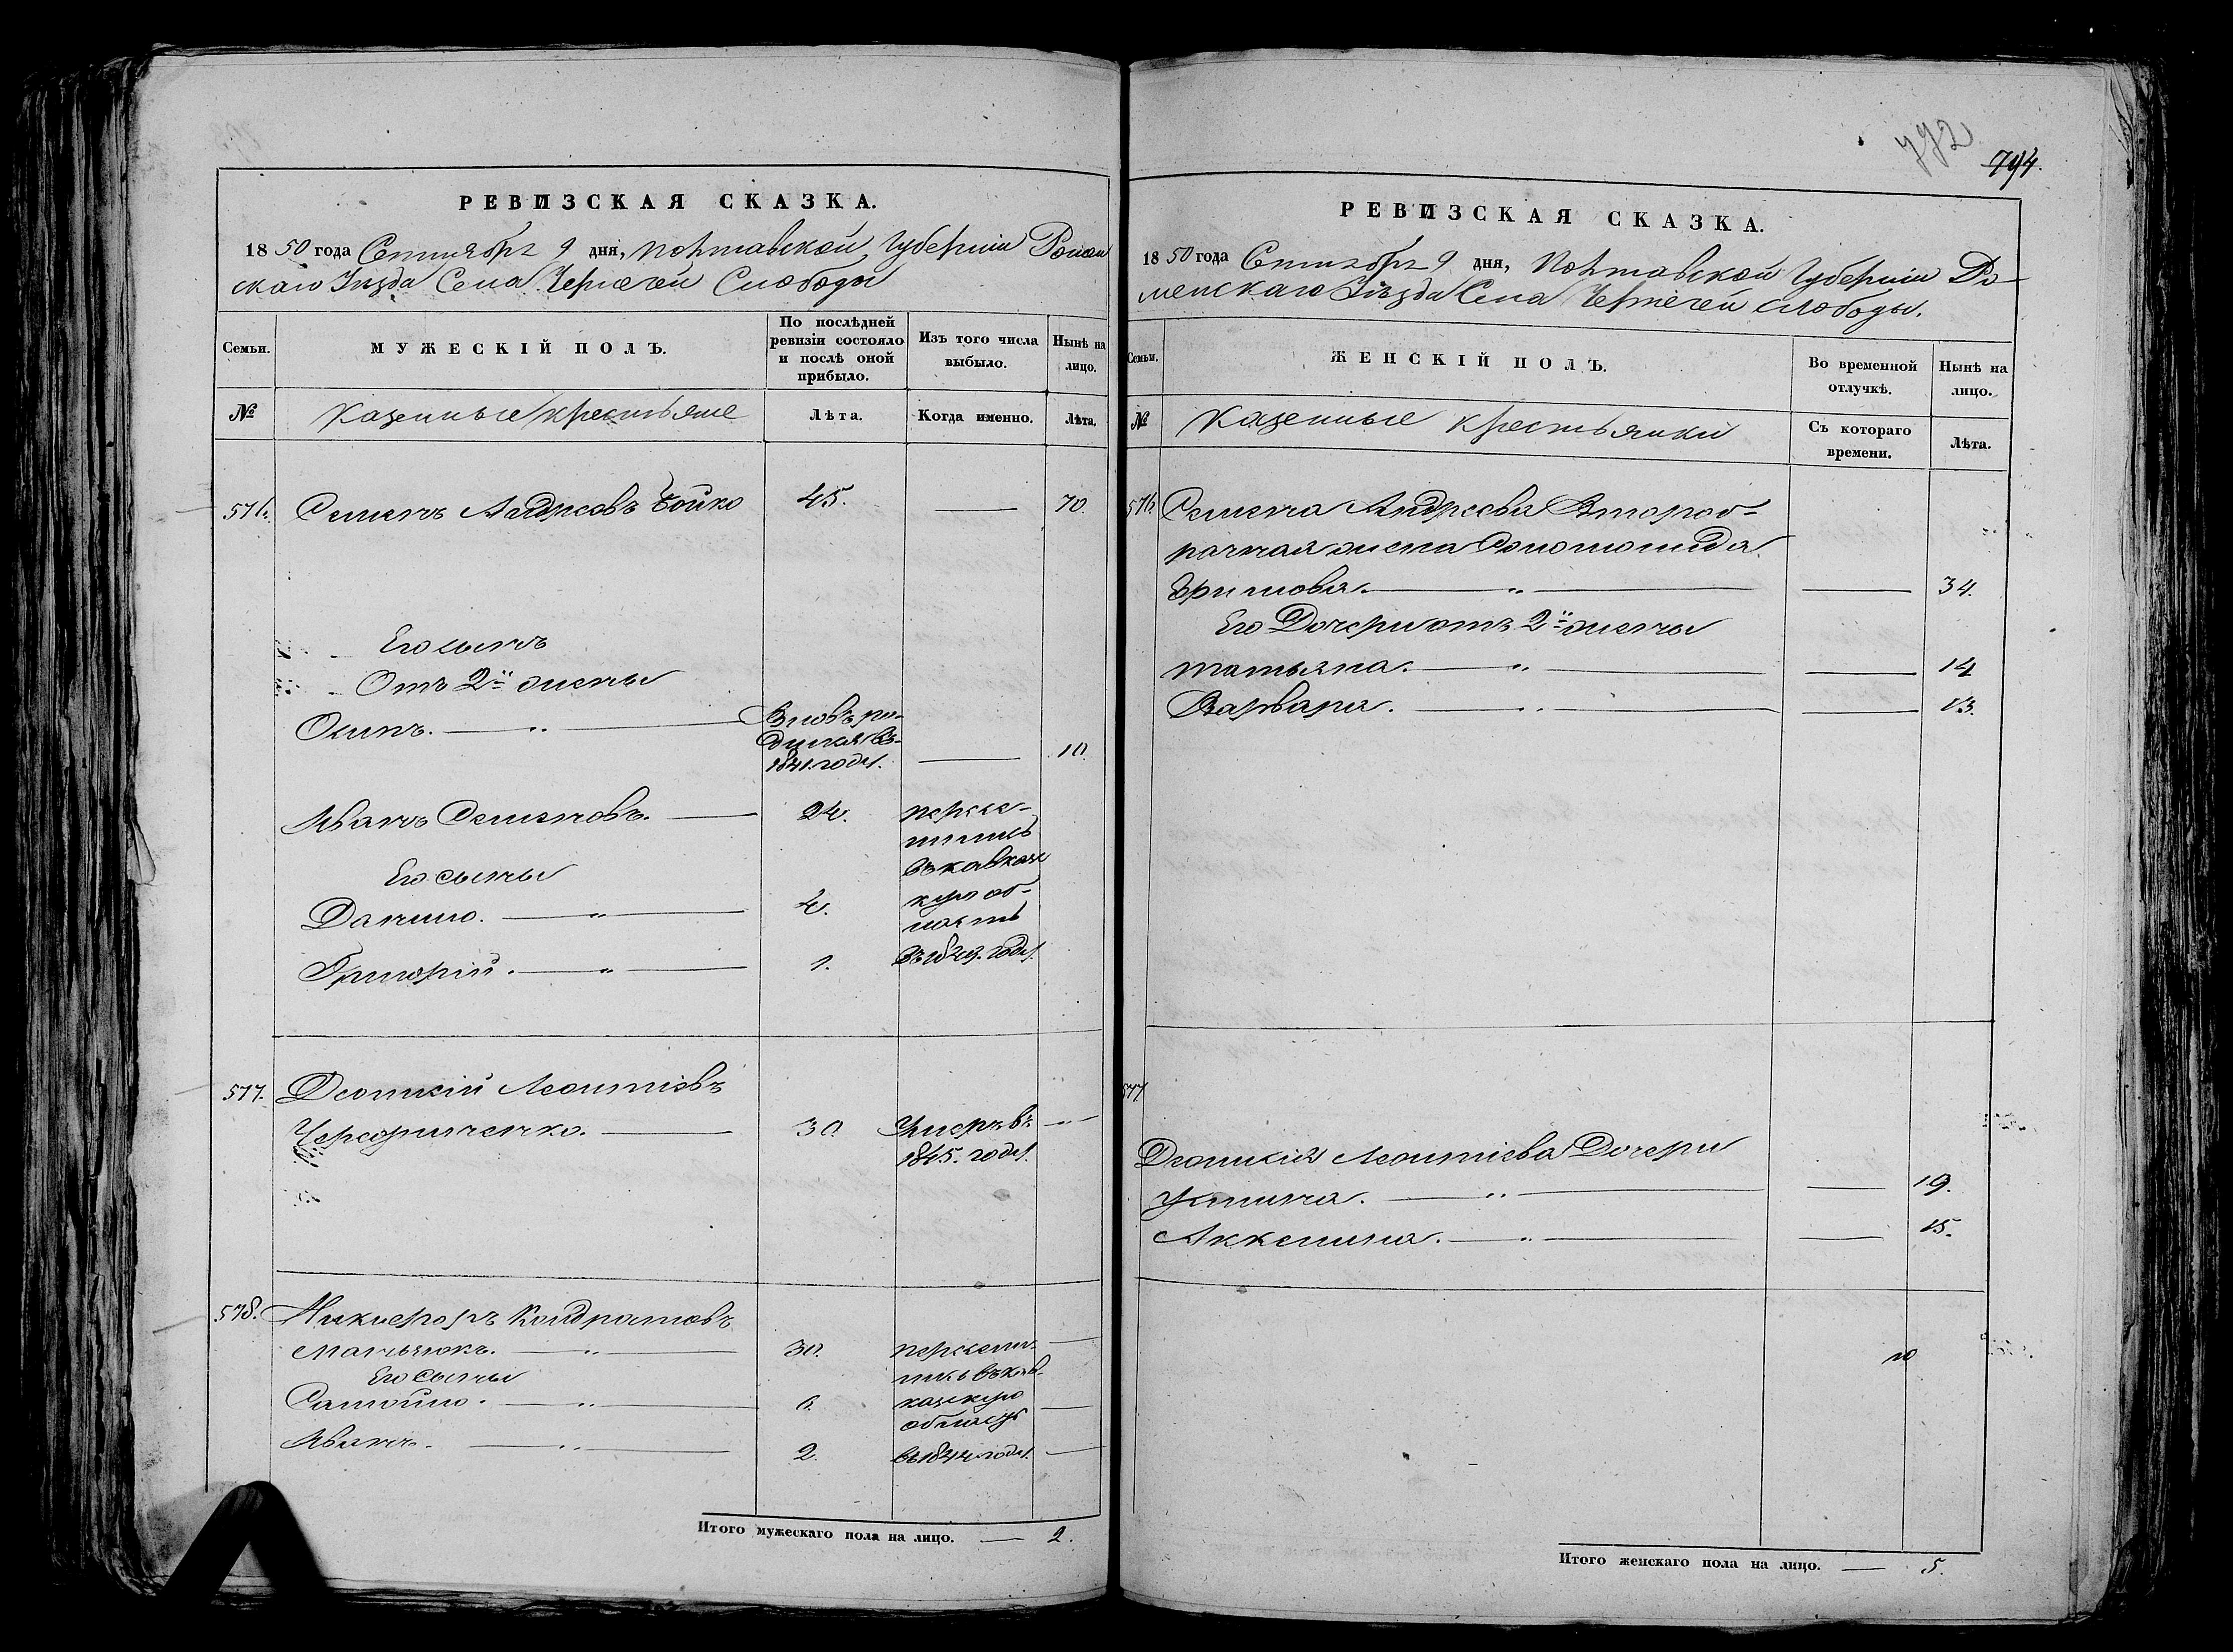 РЕВИЗСКАЯ СКАЗКА.
1850 года Сентября 9 дня, Полтавской Губернии Ромен
скаго Уезда Села Чернечей Слободы
Семьи.
МУЖЕСКІЙ ПОЛЪ.
По послѣдней ревизіи состояло и послѣ оной прибыло.
Изъ того числа выбыло.
Нынѣ на лицо.
№
Казенные крестьяне
Лѣта.
Когда именно.
Лѣта.
576. Семенъ Андреевъ Бойко 45. 70.
Его сынъ
Отъ 2й жены
Осипъ. Вновь ро-
дился въ
1841. года. 10.
Иванъ Семеновъ. 24. пересе-
лились
въ кавказс
кую об-
ласть
въ 1849. года.
Его сыны
Данило. 4.
Григорій. 1.
577. Леонтіевъ
30. Умеръ въ
1845. года.
578. Никифоръ Кондратовъ
30. пересели-
лись въ кав-
казскую
область
въ 1844 года.
Его Сыны
Самойло. 6.
Иванъ. 2.
Итого мужескаго пола на лицо. 2.
772
794.
РЕВИЗСКАЯ СКАЗКА.
1850 года Сентября 9 дня, Полтавской Губернии Ро-
менскаго Уѣзда Села Чернечей слободы.
Семьи.
ЖЕНСКІЙ ПОЛЪ.
Во временной отлучкѣ.
Нынѣ на лицо.
№
Казенные крестьянки
Съ котораго времени.
Лѣта.
576 Семена Андреева Второб-
рачная жена Соломонида
Ефимова. 34.
Его Дочери отъ 2й жены
Татьяна. 14
Варвара. 13.
577
Леонтіева Дочери
Устина. 19.
Аксенья. 15.
Итого женскаго пола на лицо. 5.